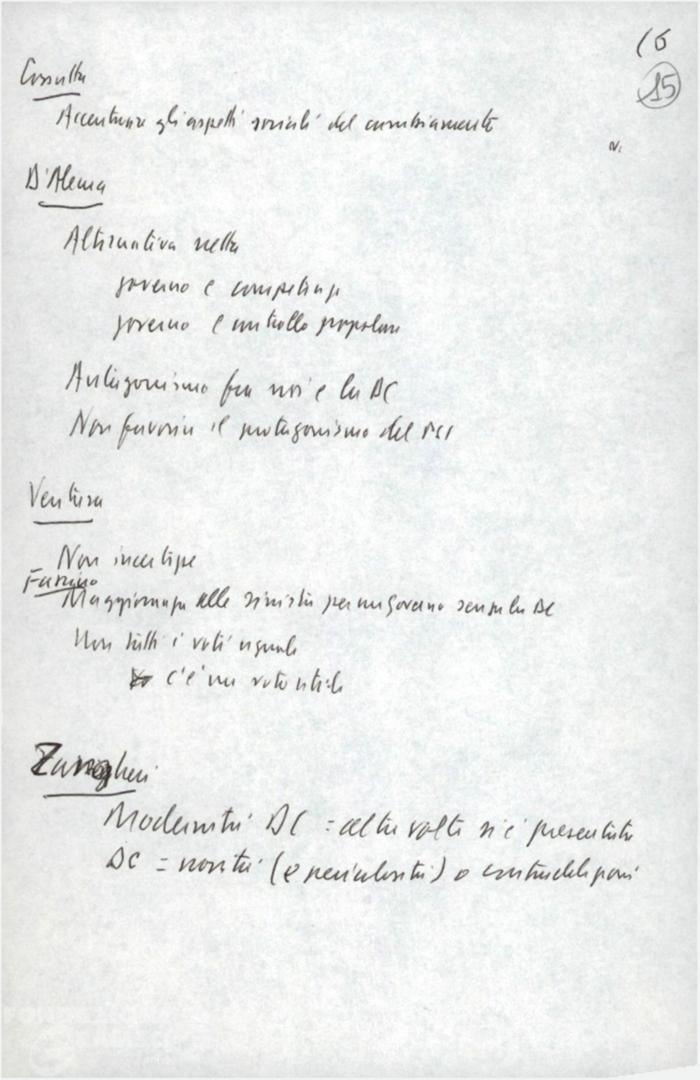 16
15
Cossutta
Accentuare gli aspetti sociali del cambiamento
N.
D'Alema
Alternativa nella
governo e competenze
governo e controllo popolare
Antagonismo fra noi e la DC
Non favorire il protagonismo del PCI
Ventura
Non incertezze
Fanino
Maggioranza alle sinistre per un governo senza la DC
Non tutti i voti uguali
c'è un voto utile
Zangheri
Modernità DC = altre volte si è presentata
DC = novità (e pericolosità) o contraddizioni